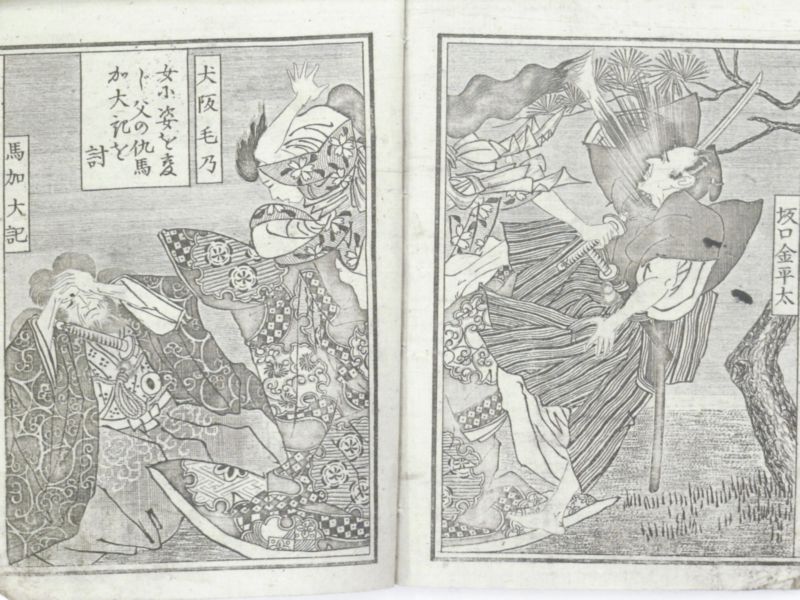 坂口金平太
犬阪毛乃
女に姿を変
じ父の仇馬
加大記を
討
馬加大記